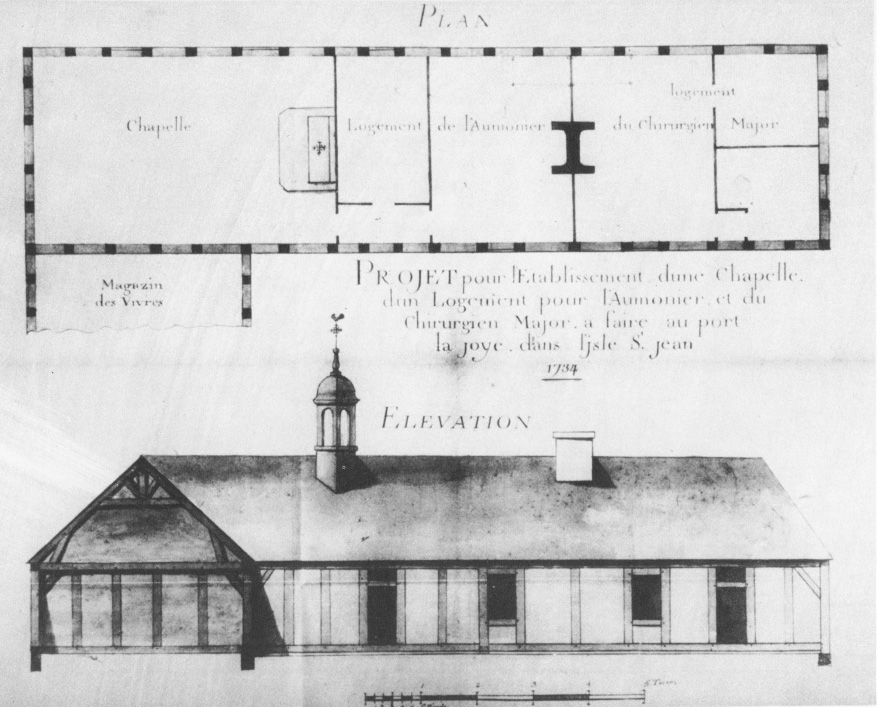 PLAN
Chapelle
Logement de l'Aumonier
logement
du Chirurgien Major
Magezin
des Vivres
PROJET pour l'Etablissement dune Chapelle.
dun Logement pour l'Aumonier. et du
Chirurgien Major. a faire au port
la joye. dans l'jsle St. jean
1734
ELEVATION